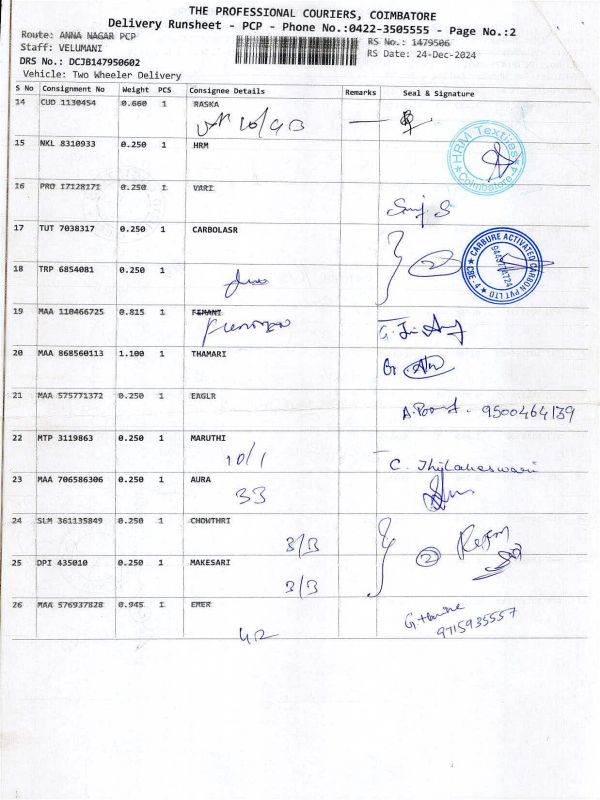 THE PROFESSIONAL COURIERS, COIMBATORE
Delivery Runsheet - PCP - Phone No.:0422-3505555 - Page No.:2
Route: ANNA NAGAR PCP
RS No.: 1479506
Staff: VELUMANI
RS Date: 24-Dec-2024
DRS No.: DCJB147950602
Vehicle: Two Wheeler Delivery
S No Consignment No Weight PCS Consignee Details Remarks Seal & Signature
14 CUD 1130454 0.660 1 RASKA
15 NKL 8310933 0.250 1 HRM
HRM Textiles Coimbatore-4
16 PRO 17128171 0.250 1 VARI
17 TUT 7038317 0.250 1 CARBOLASR
2
CARBURE ACTIVATED CARBON PVT LTD
18 TRP 6854081 0.250 1
19 MAA 110466725 0.815 1 FEMANI
20 MAA 868560113 1.100 1 THAMARI
21 MAA 575771372 0.250 1 EAGLR
9500464139
22 MTP 3119863 0.250 1 MARUTHI
10/1
C. Thilakeswari
23 MAA 706586306 0.250 1 AURA
33
24 SLM 361135849 0.250 1 CHOWTHRI
3/B
2
25 DPI 435010 0.250 1 MAKESARI
3/B
26 MAA 576937828 0.945 1 EMER
42
9715935557